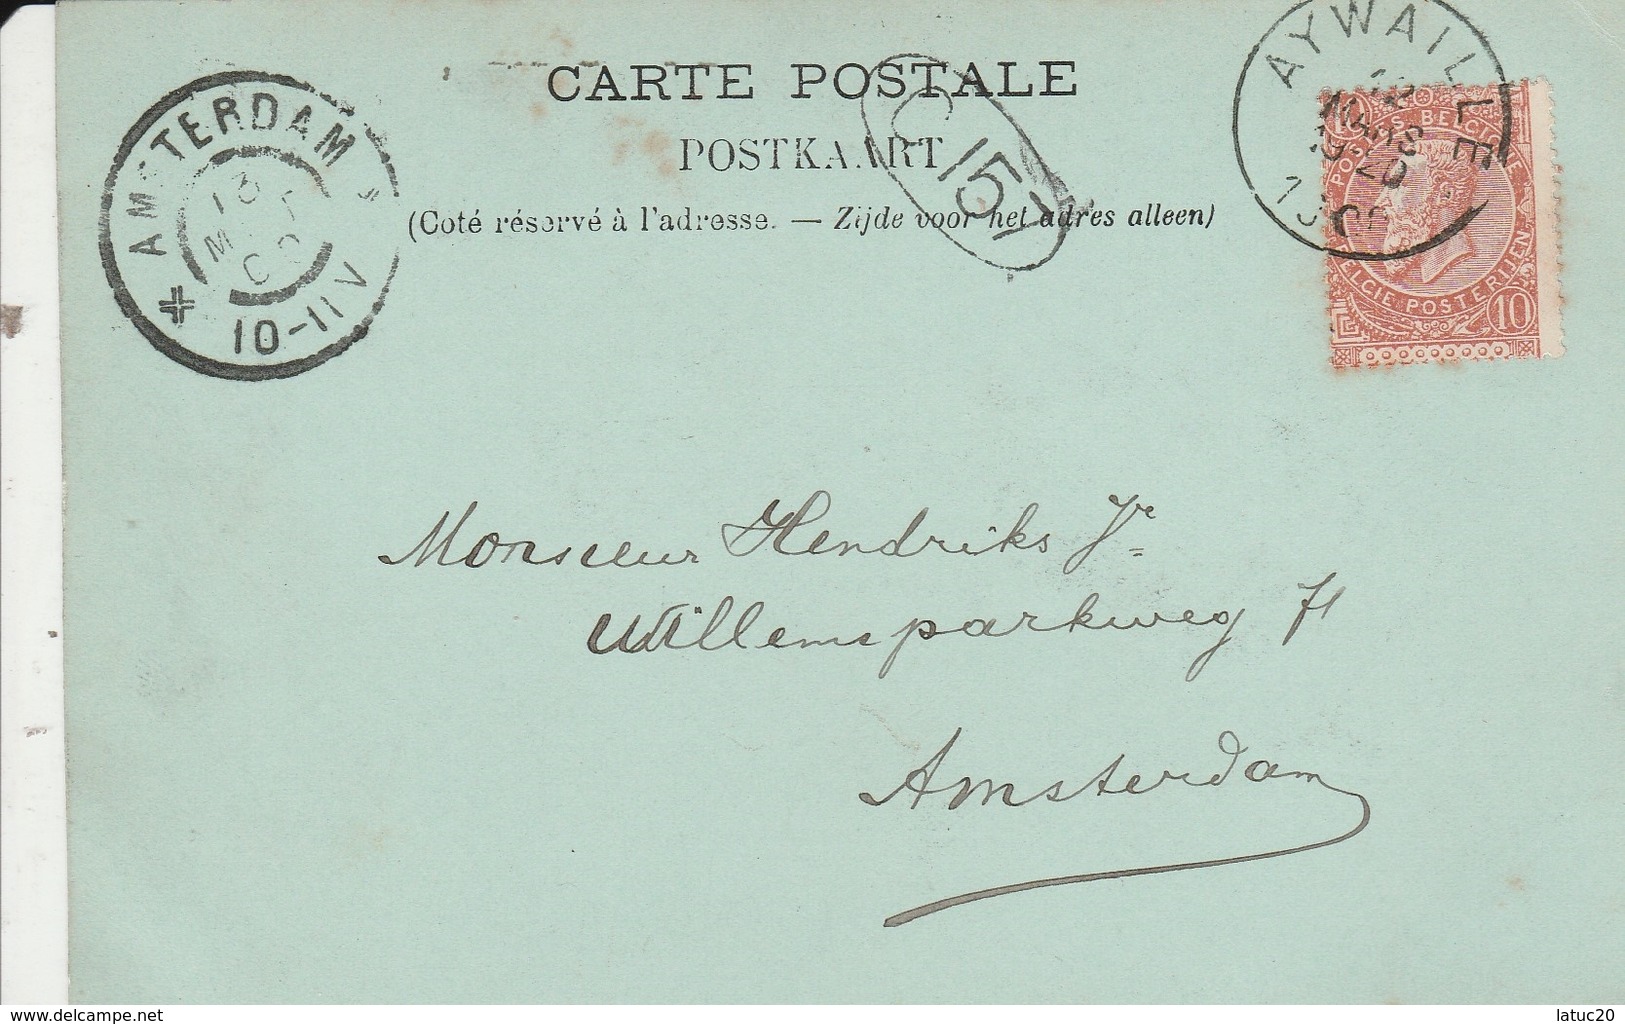 CARTE POSTALE
POSTKAART
(Coté réservé à l'adresse. — Zijde voor het adres alleen)
AMSTERDAM
13
10-11V
C 157
AYWAILLE
12
MARS
19-20
1900
POSTES BELGIQUE
BELGIE POSTERIJEN
10
Monsieur Hendriks Jr
Willemsparkweg 71
Amsterdam
www.delcampe.net
latuc20